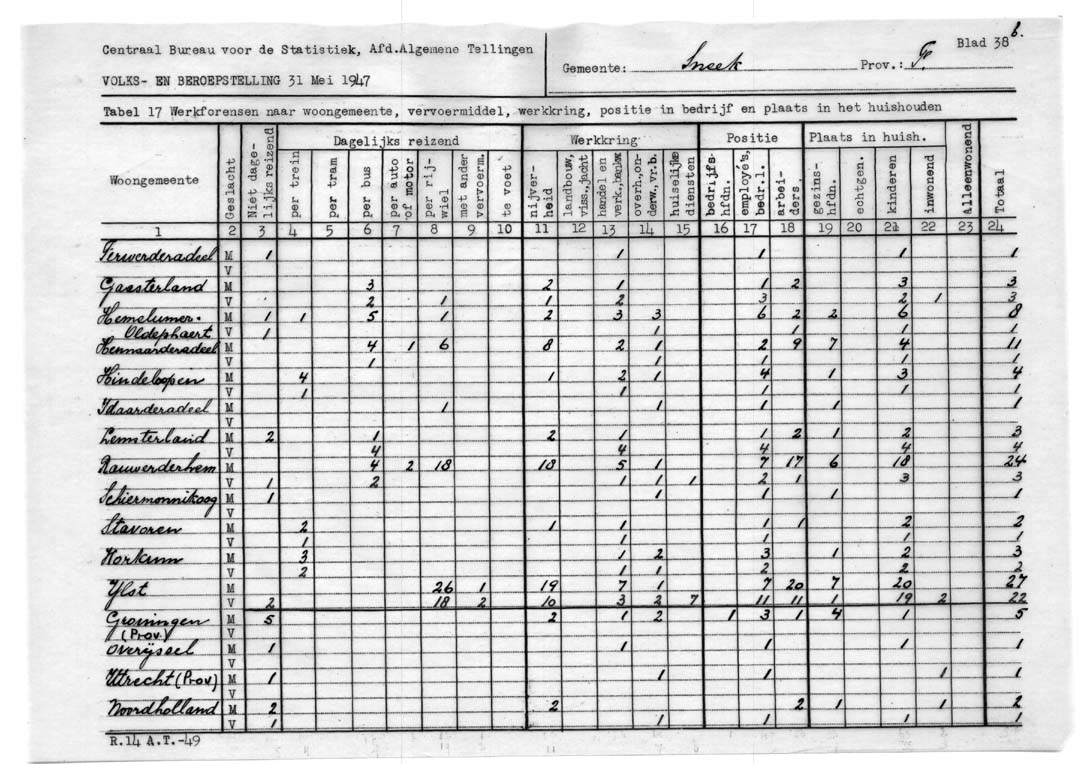 Centraal Bureau voor de Statistiek, Afd.Algemene Tellingen
VOLKS- EN BEROEPSTELLING 31 Mei 1947
Gemeente: Sneek Prov.: Fr. Blad 38 b.
Tabel 17 Werkforensen naar woongemeente, vervoermiddel, werkkring, positie in bedrijf en plaats in het huishouden
Woongemeente Geslacht Niet dage-lijks reizend Dagelijks reizend Werkkring Positie Plaats in huish. Alleenwonend Totaal
per trein per tram per bus per auto of motor per rij-wiel met ander vervoerm. te voet nijver-heid landbouw, viss., jacht handel en verk., bankw overh., on-derw., vr.b. huiselijke diensten bedrijfs-hfdn. employe's, bedr.l. arbei-ders, gezins-hfdn. echtgen. kinderen inwonend
1 2 3 4 5 6 7 8 9 10 11 12 13 14 15 16 17 18 19 20 21 22 23 24
Ferwerderadeel M 1 1 1 1 1
V
Gaasterland M 3 2 1 1 2 3 3
V 2 1 1 2 3 2 1 3
Hemelumer- M 1 1 5 1 2 3 3 6 2 2 6 8
Oldephaert V 1 1 1 1 1
Hennaarderadeel M 4 1 6 8 2 1 2 9 7 4 11
V 1 1 1 1 1
Hindeloopen M 4 1 2 1 4 1 3 4
V 1 1 1 1 1
Idaarderadeel M 1 1 1 1 1
V
Lemsterland M 2 1 2 1 1 2 1 2 3
V 4 4 4 4 4
Rauwerderhem M 4 2 18 18 5 1 7 17 6 18 24
V 1 2 1 1 1 2 1 3 3
Schiermonnikoog M 1 1 1 1 1
V
Stavoren M 2 1 1 1 1 2 2
V 1 1 1 1 1
Workum M 3 1 2 3 1 2 3
V 2 1 1 2 2 2
Ylst M 26 1 19 7 1 7 20 7 20 27
V 2 18 2 10 3 2 7 11 11 1 19 2 22
Groningen M 5 2 1 2 1 3 1 4 1 5
(Prov.) V
Overijssel M 1 1 1 1 1
V
Uttrecht (Prov) M 1 1 1 1 1
V
Noordholland M 2 2 2 1 1 2
V 1 1 1 1 1
R.14 A.T.-49